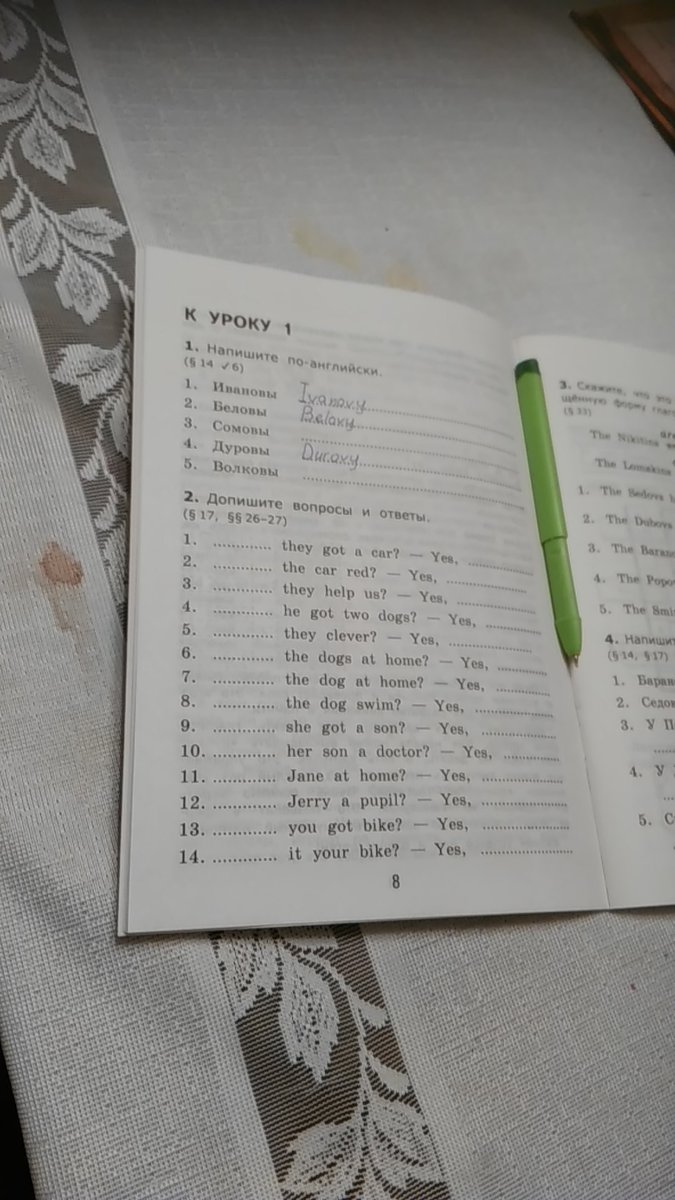 К УРОКУ 1
1. Напишите по-английски.
(§ 14 ✓6)
1. Ивановы Ivanovy
2. Беловы Belovy
3. Сомовы
4. Дуровы Durovy
5. Волковы
2. Допишите вопросы и ответы.
(§ 17, §§ 26–27)
1. ............. they got a car? — Yes, ..............
2. ............. the car red? — Yes, ..............
3. ............. they help us? — Yes, ..............
4. ............. he got two dogs? — Yes, ..............
5. ............. they clever? — Yes, ..............
6. ............. the dogs at home? — Yes, ..............
7. ............. the dog at home? — Yes, ..............
8. ............. the dog swim? — Yes, ..............
9. ............. she got a son? — Yes, ..............
10. ............. her son a doctor? — Yes, ..............
11. ............. Jane at home? — Yes, ..............
12. ............. Jerry a pupil? — Yes, ..............
13. ............. you got bike? — Yes, ..............
14. ............. it your bike? — Yes, ..............
8
3. Скажите, что это
щённую форму
(§ 33)
The Nikitins
The Lomakins
1. The Sedovs
2. The Dubovs
3. The
4. The
5. The
4.
(§ 14, § 17)
1.
2.
3. У
4. У
5.